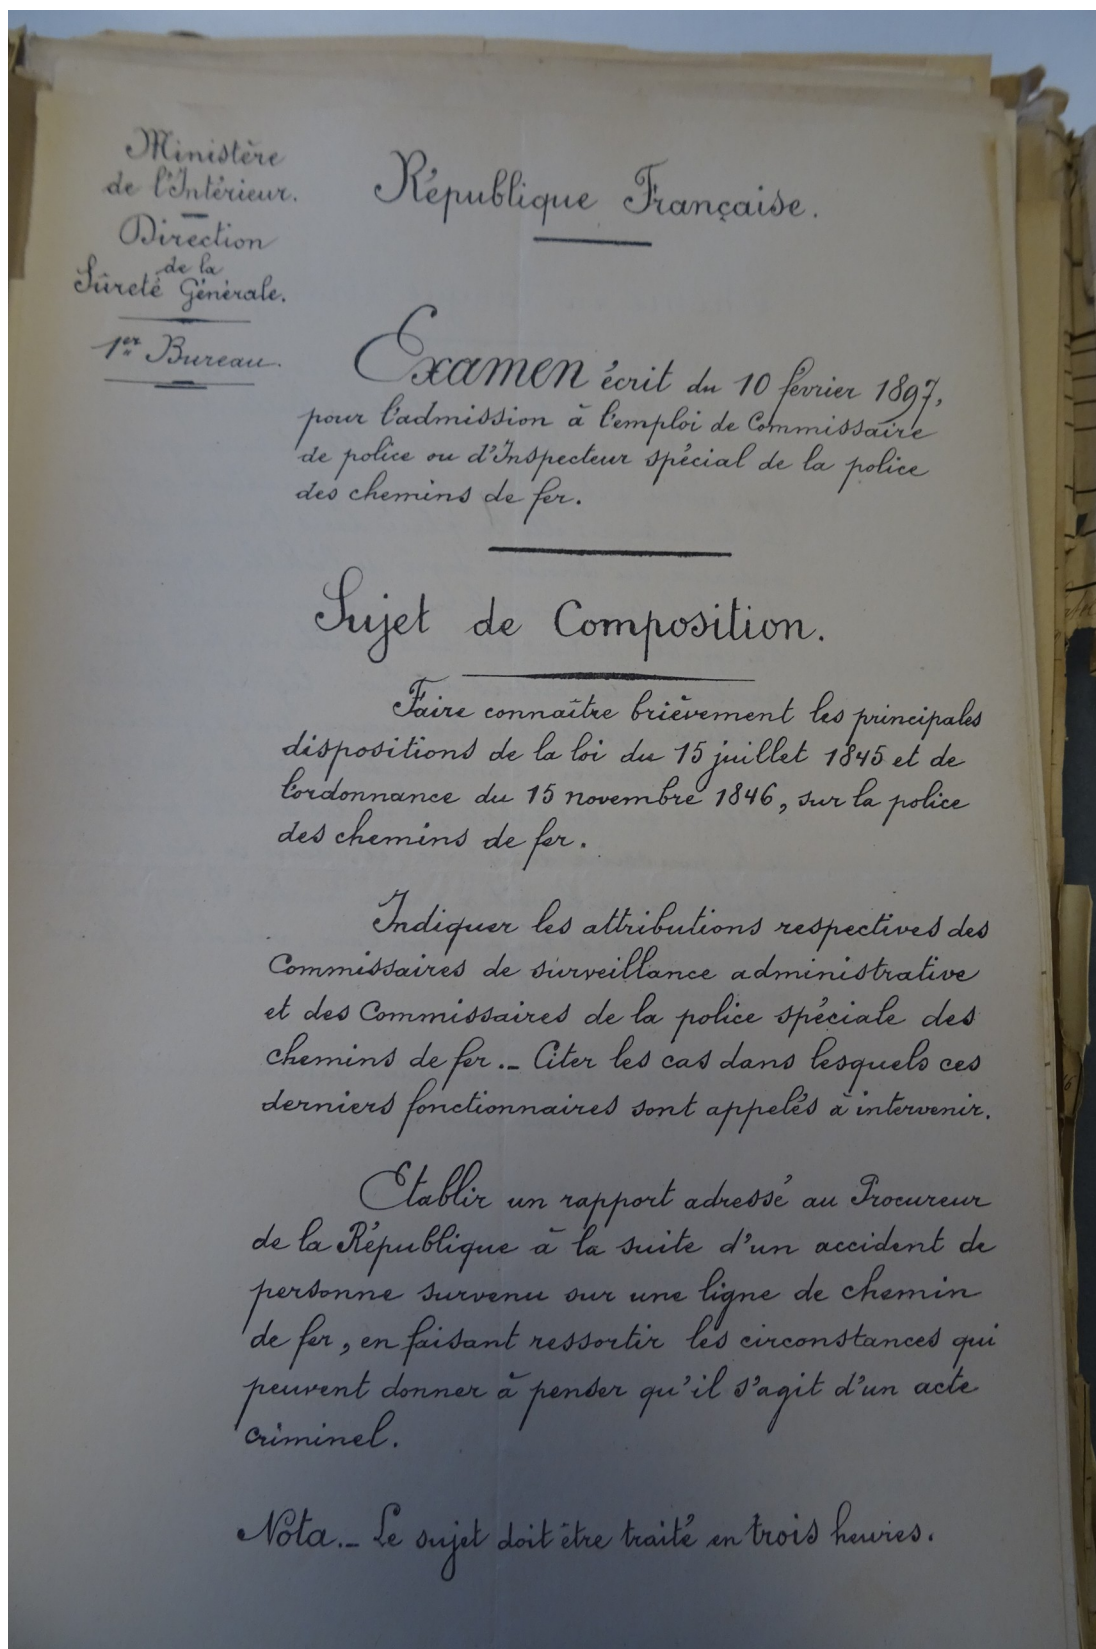 Ministère
de l'Intérieur.
Direction
de la
Sûreté Générale.
1er Bureau.
République Française.
Examen écrit du 10 février 1897,
pour l'admission à l'emploi de Commissaire
de police ou d'Inspecteur spécial de la police
des chemins de fer.
Sujet de Composition.
Faire connaître brièvement les principales
dispositions de la loi du 15 juillet 1845 et de
l'ordonnance du 15 novembre 1846, sur la police
des chemins de fer.
Indiquer les attributions respectives des
Commissaires de surveillance administrative
et des Commissaires de la police spéciale des
chemins de fer._ Citer les cas dans lesquels ces
derniers fonctionnaires sont appelés à intervenir.
Etablir un rapport adressé au Procureur
de la République à la suite d'un accident de
personne survenu sur une ligne de chemin
de fer, en faisant ressortir les circonstances qui
peuvent donner à penser qu'il s'agit d'un acte
criminel.
Nota._ Le sujet doit être traité en trois heures.